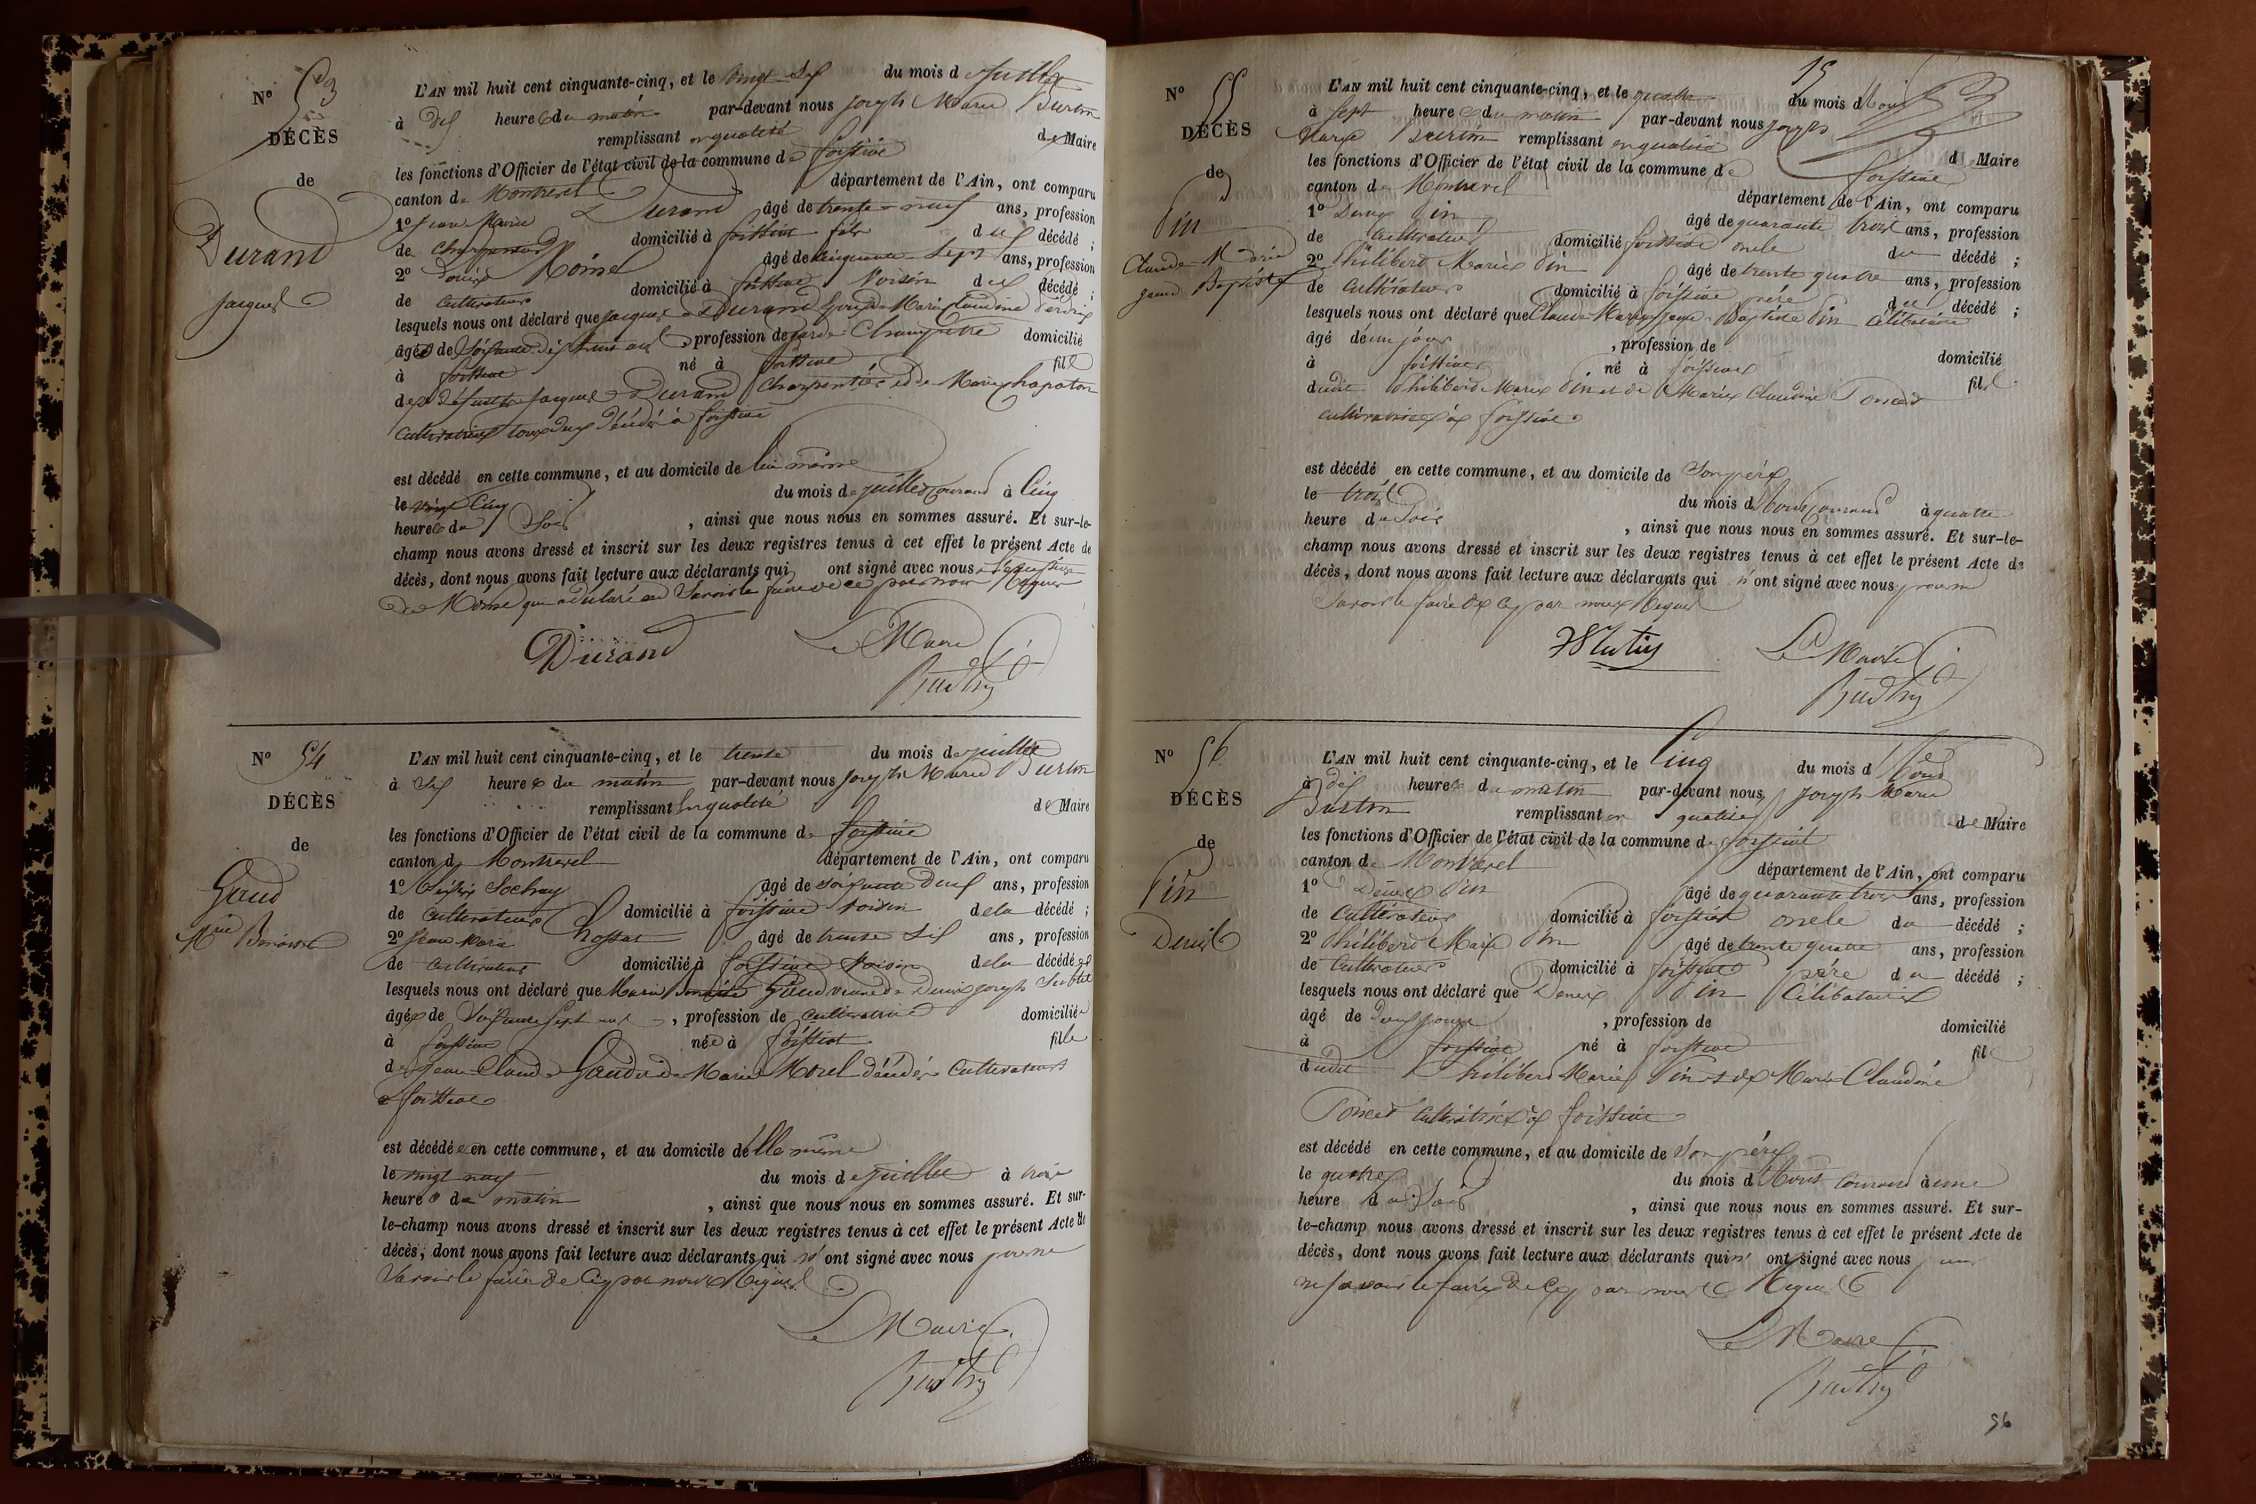 N° 53
DÉCÈS
de
Durand
Jacques
L'AN mil huit cent cinquante-cinq, et le vingt six du mois de Juillet
à dix heures du matin par-devant nous Joseph Marie Burtin
remplissant en qualité de Maire
les fonctions d'Officier de l'état civil de la commune de foissiat
canton de Montrevel département de l'Ain, ont comparu
1° Jean Marie Durand âgé de trente neuf ans, profession
de Charpentier domicilié à foissiat fils du décédé ;
2° Denis Morel âgé de cinquante sept ans, profession
de cultivateur domicilié à foissiat voisin du décédé ;
lesquels nous ont déclaré que Jacques Durand époux de Marie Claudine
âgé de soixante dix ans profession de garde Champêtre domicilié
à foissiat né à foissiat fils
de défunts Jacques Durand Charpentier et de Marie Chapaton
cultivatrice tous deux décédés à foissiat
est décédé en cette commune, et au domicile de lui même
le vingt cinq du mois de juillet courant à cinq
heures du soir , ainsi que nous nous en sommes assuré. Et sur-le-
champ nous avons dressé et inscrit sur les deux registres tenus à cet effet le présent Acte de
décès, dont nous avons fait lecture aux déclarants qui ont signé avec nous
de Morel qui a déclaré ne savoir le faire de ce par nous requis
Durand Le Maire
Burtin
N° 54
DÉCÈS
de
Gaud
Mrie
L'AN mil huit cent cinquante-cinq, et le trente du mois de juillet
à six heures du matin par-devant nous Joseph Marie Burtin
remplissant en qualité de Maire
les fonctions d'Officier de l'état civil de la commune de foissiat
canton de Montrevel département de l'Ain, ont comparu
1° Sochay âgé de soixante deux ans, profession
de cultivateur domicilié à foissiat voisin de la décédé ;
2° Jean Marie Chossat âgé de trente six ans, profession
de cultivateur domicilié à foissiat voisin de la décédée
lesquels nous ont déclaré que Marie Gaud veuve de Denis Joseph
âgée de soixante sept ans , profession de cultivatrice domiciliée
à foissiat née à foissiat fille
de Jean Claude Gaud et de Marie Morel décédés cultivateurs
à foissiat
est décédée en cette commune, et au domicile d'elle même
le vingt neuf du mois de juillet à trois
heures du matin , ainsi que nous nous en sommes assuré. Et sur-
le-champ nous avons dressé et inscrit sur les deux registres tenus à cet effet le présent Acte de
décès, dont nous avons fait lecture aux déclarants qui n'ont signé avec nous pour ne
savoir le faire de ce par nous requis
Le Maire
Burtin
15
N° 55
DÉCÈS
de
Pin
Claude Marie
Jean Baptiste
L'AN mil huit cent cinquante-cinq, et le quatre du mois d'Aout
à sept heures du matin par-devant nous Joseph
Marie Burtin remplissant en qualité de Maire
les fonctions d'Officier de l'état civil de la commune de foissiat
canton de Montrevel département de l'Ain, ont comparu
1° Denis Pin âgé de quarante trois ans, profession
de cultivateur domicilié foissiat oncle du décédé ;
2° Philibert Marie Pin âgé de trente quatre ans, profession
de cultivateur domicilié à foissiat père du décédé ;
lesquels nous ont déclaré que Claude Marie Jean Baptiste Pin célibataire
âgé d'un jour , profession de domicilié
à foissiat né à foissiat fils
dudit Philibert Marie Pin et de Marie Claudine Poncet
cultivatrice à foissiat
est décédé en cette commune, et au domicile de son père
le trois du mois d'Aout courant à quatre
heure du soir , ainsi que nous nous en sommes assuré. Et sur-le-
champ nous avons dressé et inscrit sur les deux registres tenus à cet effet le présent Acte de
décès, dont nous avons fait lecture aux déclarants qui n'ont signé avec nous pour ne
savoir le faire de ce par nous requis
Le Maire
Burtin
N° 56
DÉCÈS
de
Pin
Denis
L'AN mil huit cent cinquante-cinq, et le cinq du mois d'Aout
à dix heures du matin par-devant nous Joseph Marie
Burtin remplissant en qualité de Maire
les fonctions d'Officier de l'état civil de la commune de foissiat
canton de Montrevel département de l'Ain, ont comparu
1° Denis Pin âgé de quarante trois ans, profession
de cultivateur domicilié à foissiat oncle du décédé ;
2° Philibert Marie Pin âgé de trente quatre ans, profession
de cultivateur domicilié à foissiat père du décédé ;
lesquels nous ont déclaré que Denis Pin célibataire
âgé de deux jours , profession de domicilié
à foissiat né à foissiat fils
dudit Philibert Marie Pin et de Marie Claudine
Poncet cultivatrice à foissiat
est décédé en cette commune, et au domicile de son père
le quatre du mois d'Aout courant à une
heure du soir , ainsi que nous nous en sommes assuré. Et sur-
le-champ nous avons dressé et inscrit sur les deux registres tenus à cet effet le présent Acte de
décès, dont nous avons fait lecture aux déclarants qui n'ont signé avec nous pour
ne savoir le faire de ce par nous requis
Le Maire
Burtin
56